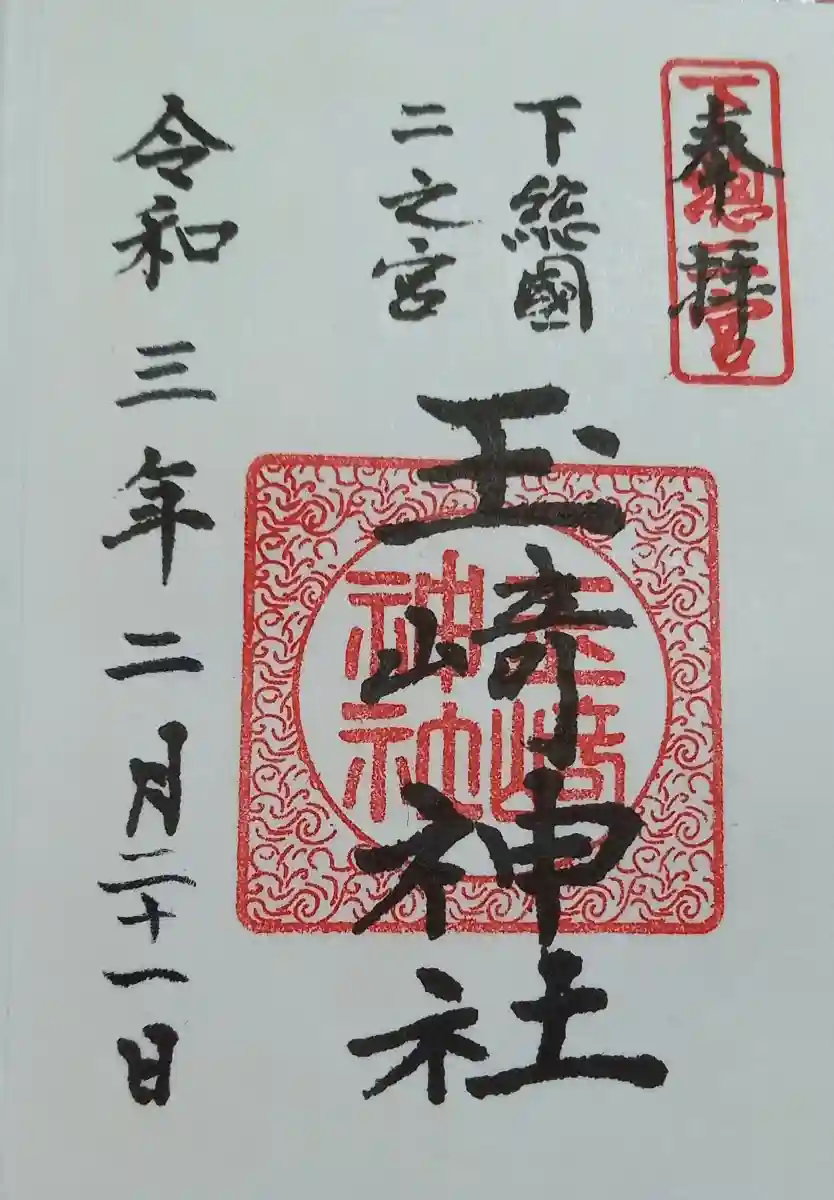 奉拝
下総二宮
下総國
二之宮
玉﨑神社
玉崎神社
令和三年二月二十一日